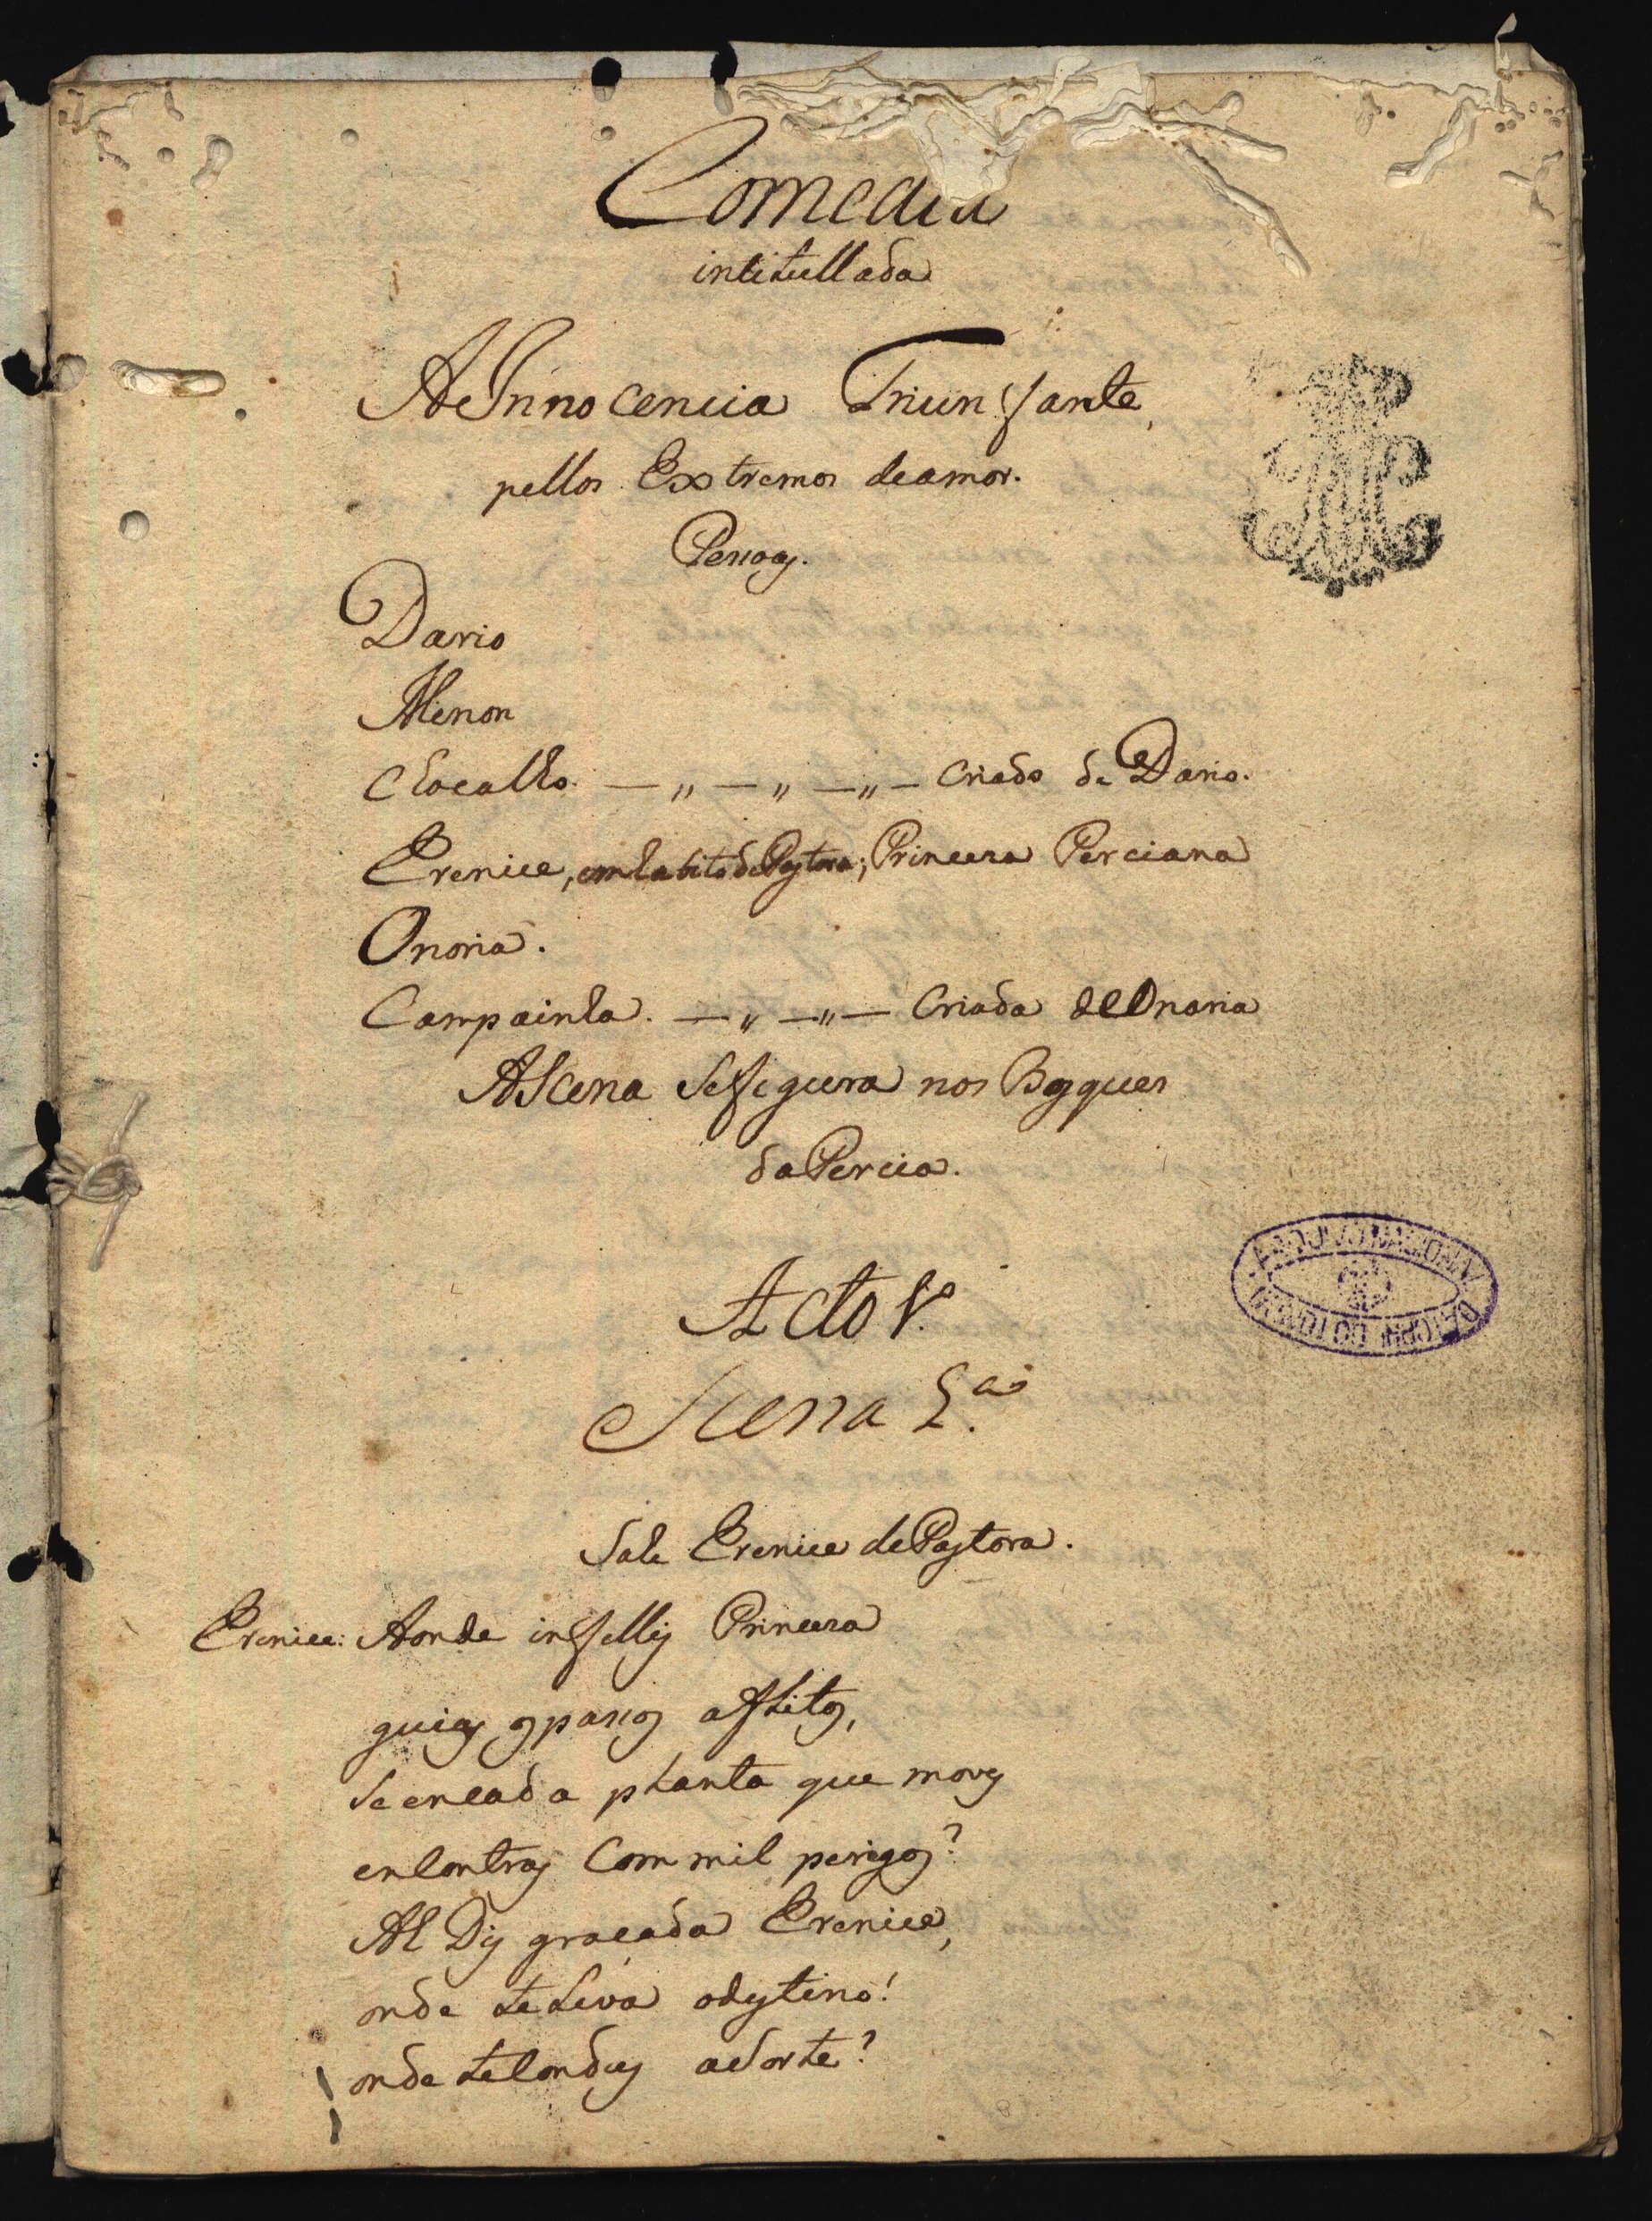 Comedia
intitullada
A Innocencia Triunfante,
pellos Extremos de amor.
Pessoas.
Dario
Menon
Chocalho. — „ — „ — „ — Criado de Dario.
Erenice, em habito de Pastora; Princeza Perciana
Onoria.
Campainha. — „ — „ — Criada de Onoria
A Scena se figura nos Bosques
da Percia.
Acto 1º
Scena 1ª
Sahe Erenice de Pastora.
Erenice: Aonde infellis Princeza
guias os passos aflitos,
se em cada planta que moves
encontras Com mil perigos?
Ah Disgraçada Erenice,
onde te Leva o destino!
onde te Conduz a Sorte?
ARQUIVO NACIONAL
DA TORRE DO TOMBO